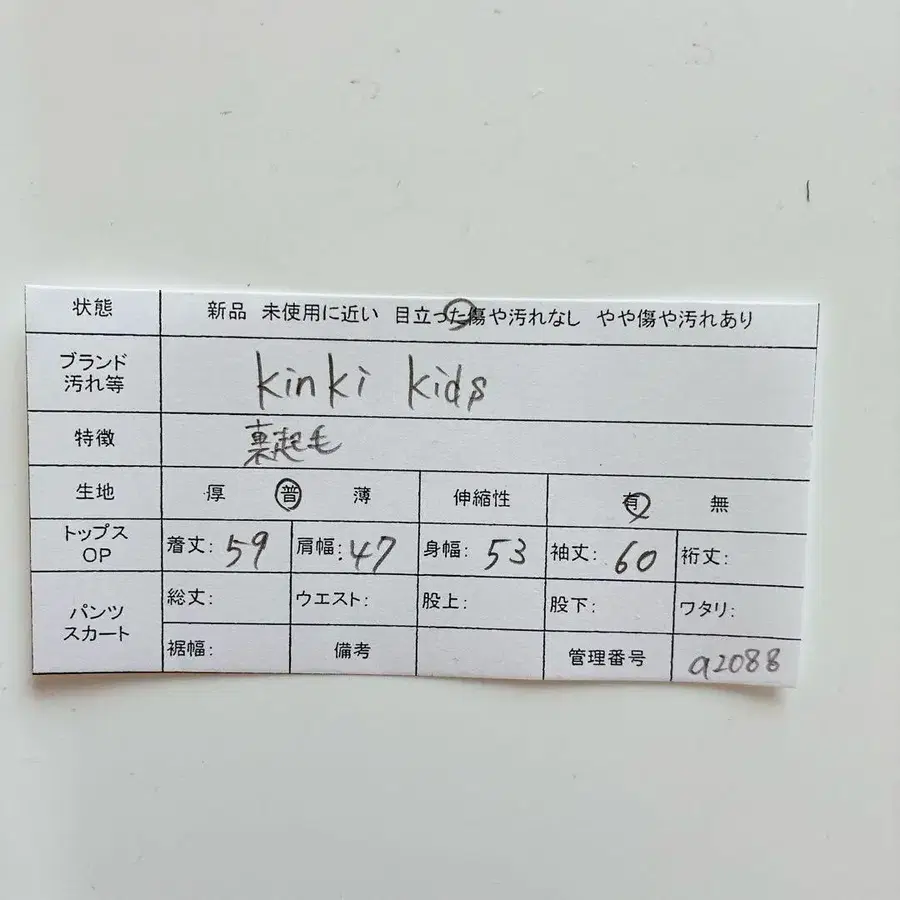 状態 新品 未使用に近い 目立った傷や汚れなし やや傷や汚れあり
ブランド
汚れ等 kinki kids
特徴 裏起毛
生地 厚 普 薄 伸縮性 有 無
トップス
OP 着丈: 59 肩幅: 47 身幅: 53 袖丈: 60 裄丈:
パンツ
スカート 総丈: ウエスト: 股上: 股下: ワタリ:
裾幅: 備考 管理番号 a2088